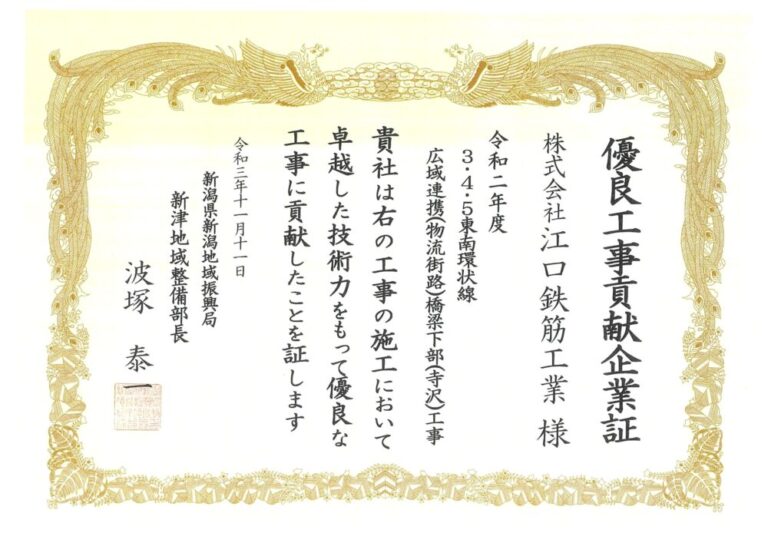 優良工事貢献企業証
株式会社 江口鉄筋工業 様
令和二年度
3・4・5東南環状線
広域連携(物流街路)橋梁下部(寺沢)工事
貴社は右の工事の施工において
卓越した技術力をもって優良な
工事に貢献したことを証します
令和三年十一月十一日
新潟県新潟地域振興局
新津地域整備部長
波塚 泰一